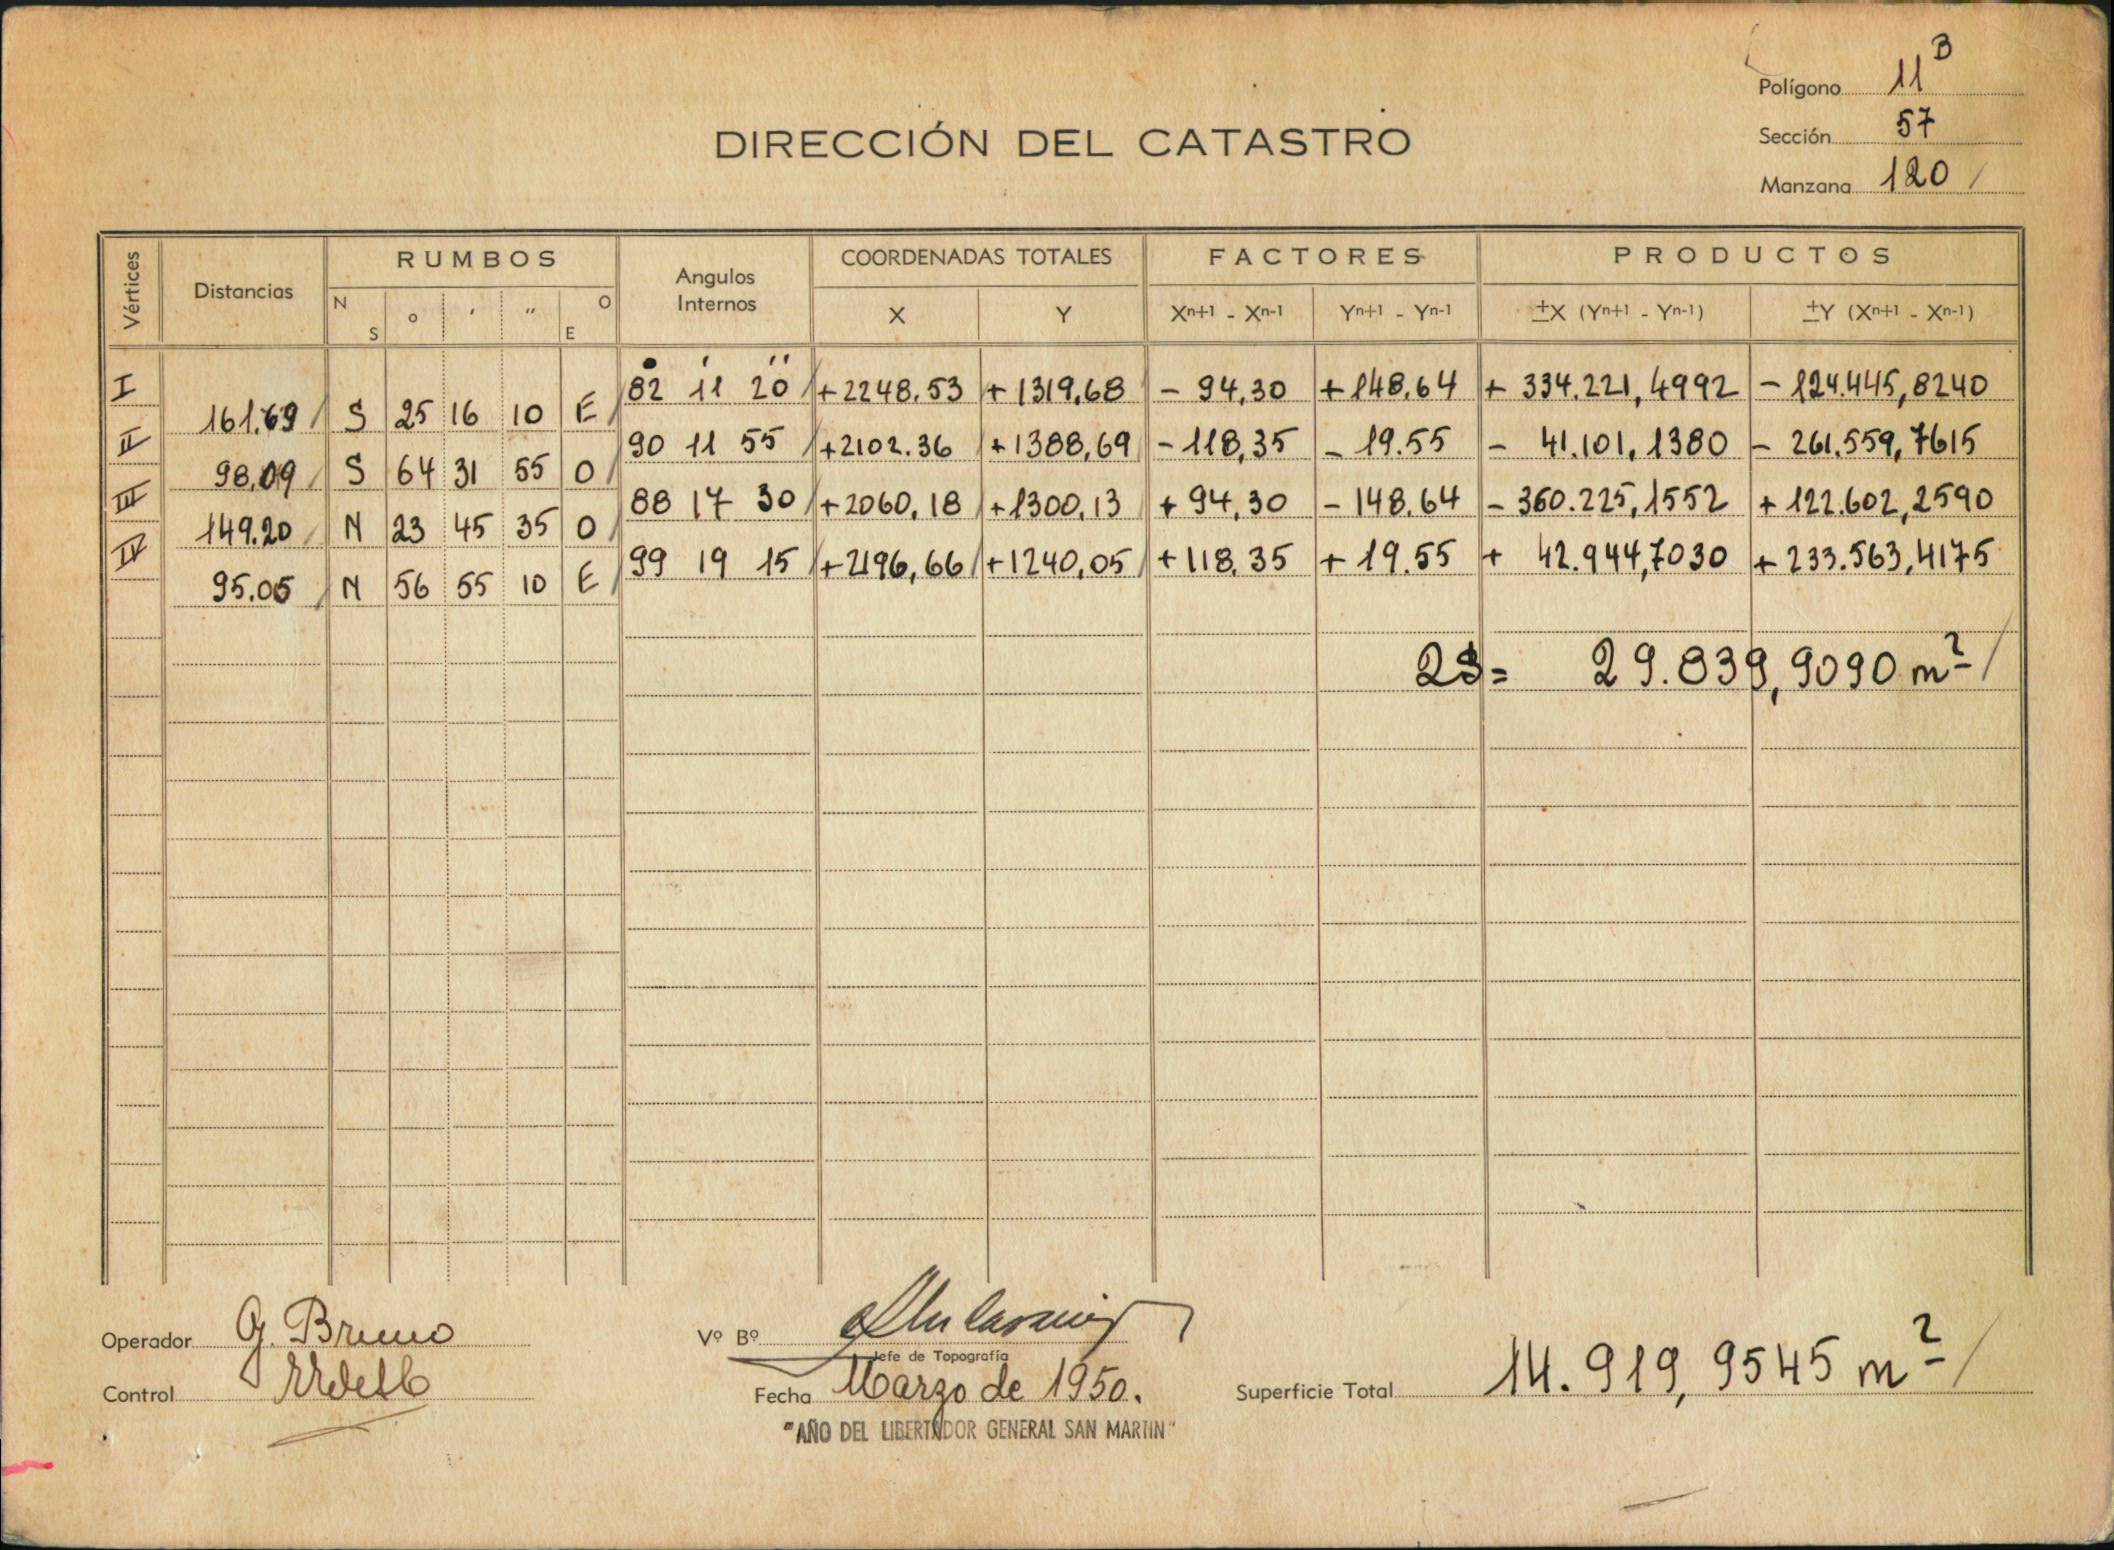 Polígono 11 B
DIRECCIÓN DEL CATASTRO
Sección 57
Manzana 120 /
Vértices Distancias RUMBOS Angulos Internos COORDENADAS TOTALES FACTORES PRODUCTOS
N S ° ' " O E X Y Xn+1 - Xn-1 Yn+1 - Yn-1 ±X (Yn+1 - Yn-1) ±Y (Xn+1 - Xn-1)
° ' "
I 82 11 20 / +2248.53 + 1319,68 - 94,30 +148,64 + 334.221,4992 - 124.445,8240
161.69 / S 25 16 10 E /
II 90 11 55 / +2102.36 +1388,69 -188,35 - 19.55 - 41.101,1380 - 261.559,7615
98.09 / S 64 31 55 O /
III 88 17 30 / +2060,18 +1300,13 + 94,30 - 148,64 - 306.225,1552 + 122.602,2590
149.20 / N 23 45 35 O /
IV 99 19 15 / +2196,66 / +1240,05 / +188,35 + 19.55 + 42.944,7030 + 233.563,4175
95.05 / N 56 55 10 E /
2S = 29.839,9090 m² /
Operador G. Bruno
Vº Bº
Jefe de Topografía
Control
Fecha Marzo de 1950.
Superficie Total 14.919,9545 m² /
"AÑO DEL LIBERTADOR GENERAL SAN MARTIN"